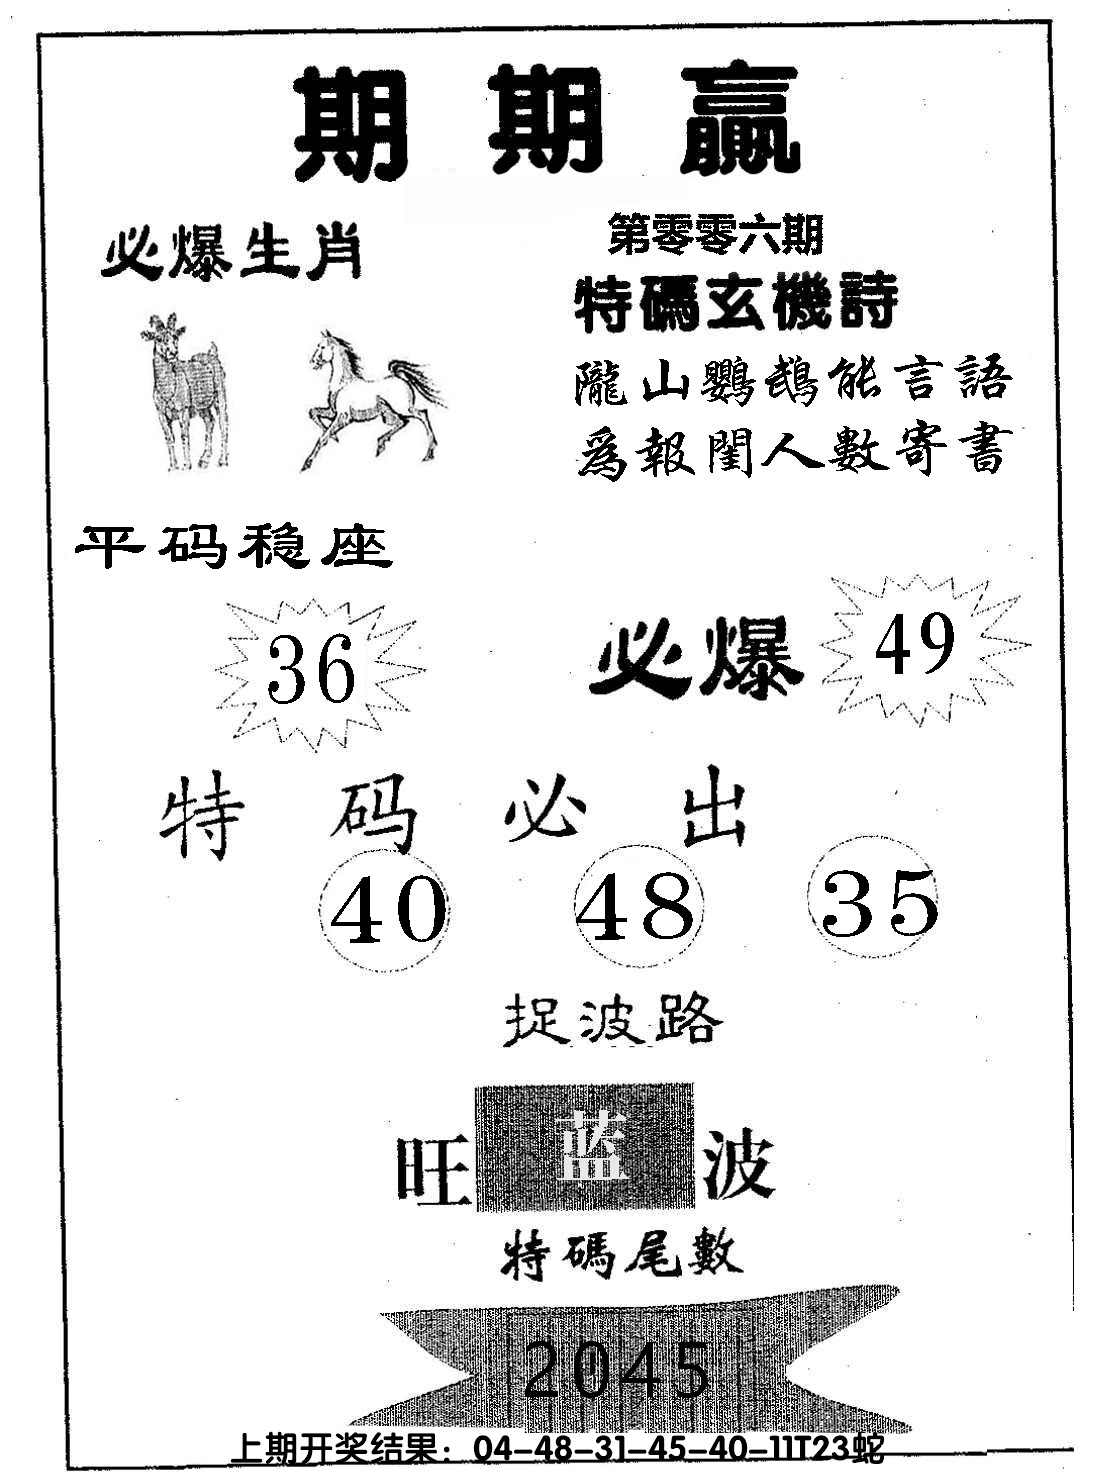 期期赢
必爆生肖
第零零六期
特碼玄機詩
隴山鸚鵡能言語
爲報閨人數寄書
平码稳座
36
必爆 49
特码必出
40 48 35
捉波路
旺 蓝 波
特碼尾數
2045
上期开奖结果：04-48-31-45-40-11T23蛇